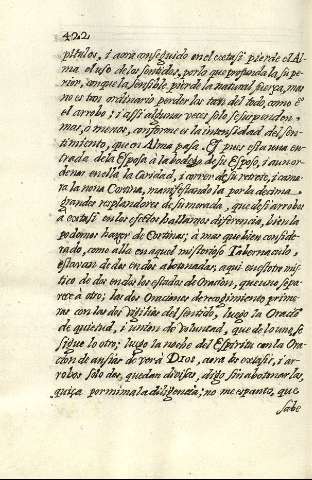 422
pitulos, i aora conseguido en el extasi pierde el Al-
ma el uso de los sentidos, por lo que profunda la supe-
rior, aunque la sensible pierde la natural fuerza, mas
no es tan ordinario perder los tan del todo, como en
el arrobo; i assi algunas veces solo se suspenden
mas, ò menos, conforme es la intensidad del sen-
timiento, que en Alma passa. pues esta una en-
trada de la Esposa à la bodega de su Esposo, i an or-
denar en ella la Caridad, i correr de su retrete, i cama-
ra la nona Cortina, manifestando la por la decima
grandes resplandores de su morada, que de si arrobos
à extasi en los efectos hallamos diferencia, bien la
podemos hazer de Cortinas; à mas que bien conside-
rado, como alla en aquel misterioso Tabernaculo,
estavan de dos en dos abonnadas, aqui en estotro mis-
tico de dos en dos los estados de Oracion, que uno sepa-
rar à otro; las dos Oraciones de recogimiento prime-
ras con las dos vigilias del sentido, luego la Oracio
de quietud, i union de voluntad, que de lo uno, se
sigue lo otro; luego la noche del Espiritu con la Ora-
cion de ansias de ver à DIOS, aora los extasis, i ar-
robos solo dos, quedan divisos, digo sin abotonarlas,
quiça por mi mala diligencia; no me espanto, que
sabe